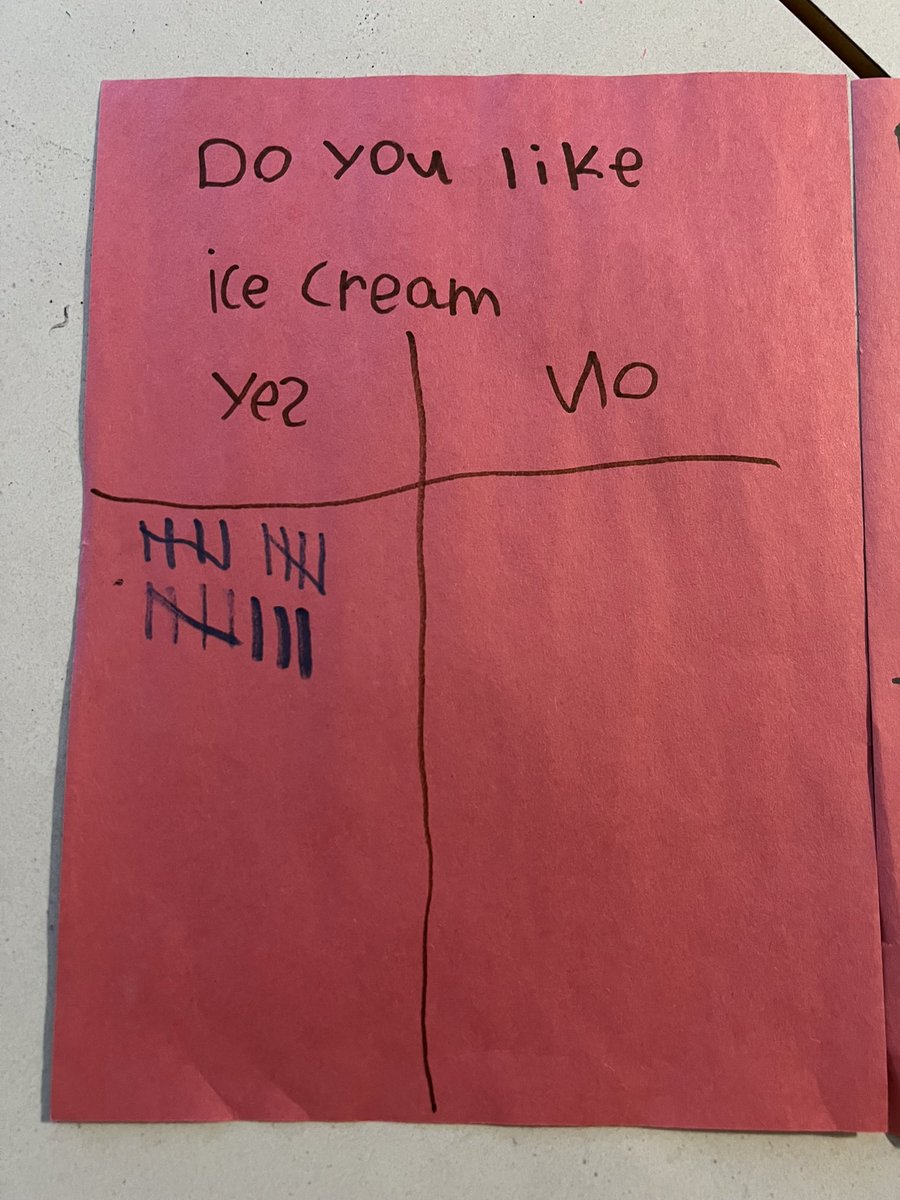 Do you like
ice cream
yes No